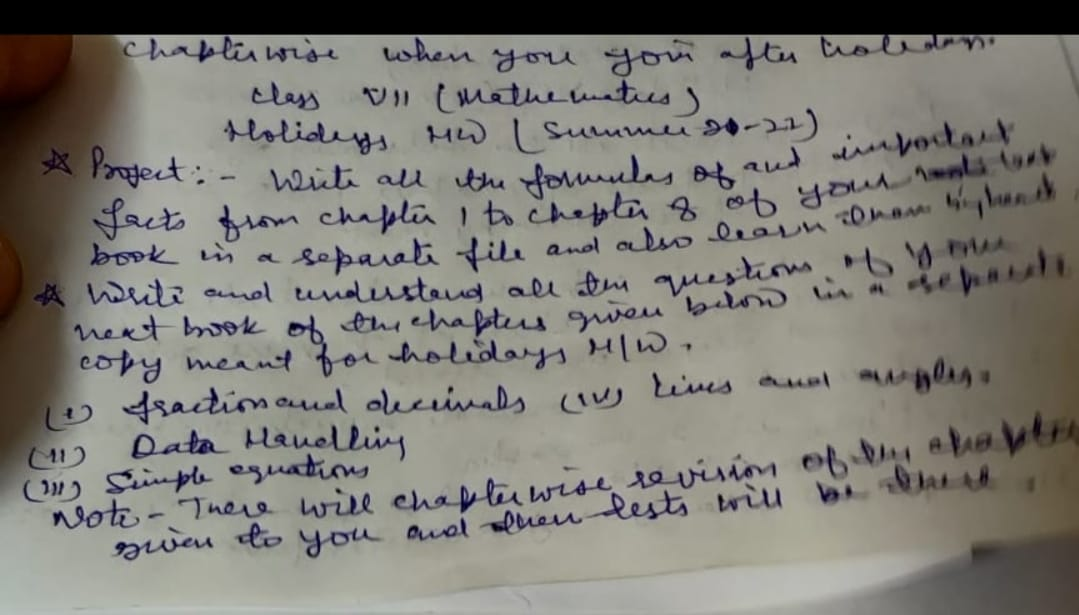 chapterwise when you join after holidays.
Class VII (Mathematics)
Holidays HW (Summer 20-22)
☆ Project:- Write all the formulas of and important
facts from chapter 1 to chapter 8 of your
book in a separate file and also learn them
☆ Write and understand all the questions of your
next book of the chapters given below in a separate
copy meant for holidays H/W.
(I) fraction and decimals (IV) Lines and angles.
(II) Data Handling
(III) Simple equations
Note- There will chapterwise revision of the chapter
given to you and then tests will be there.